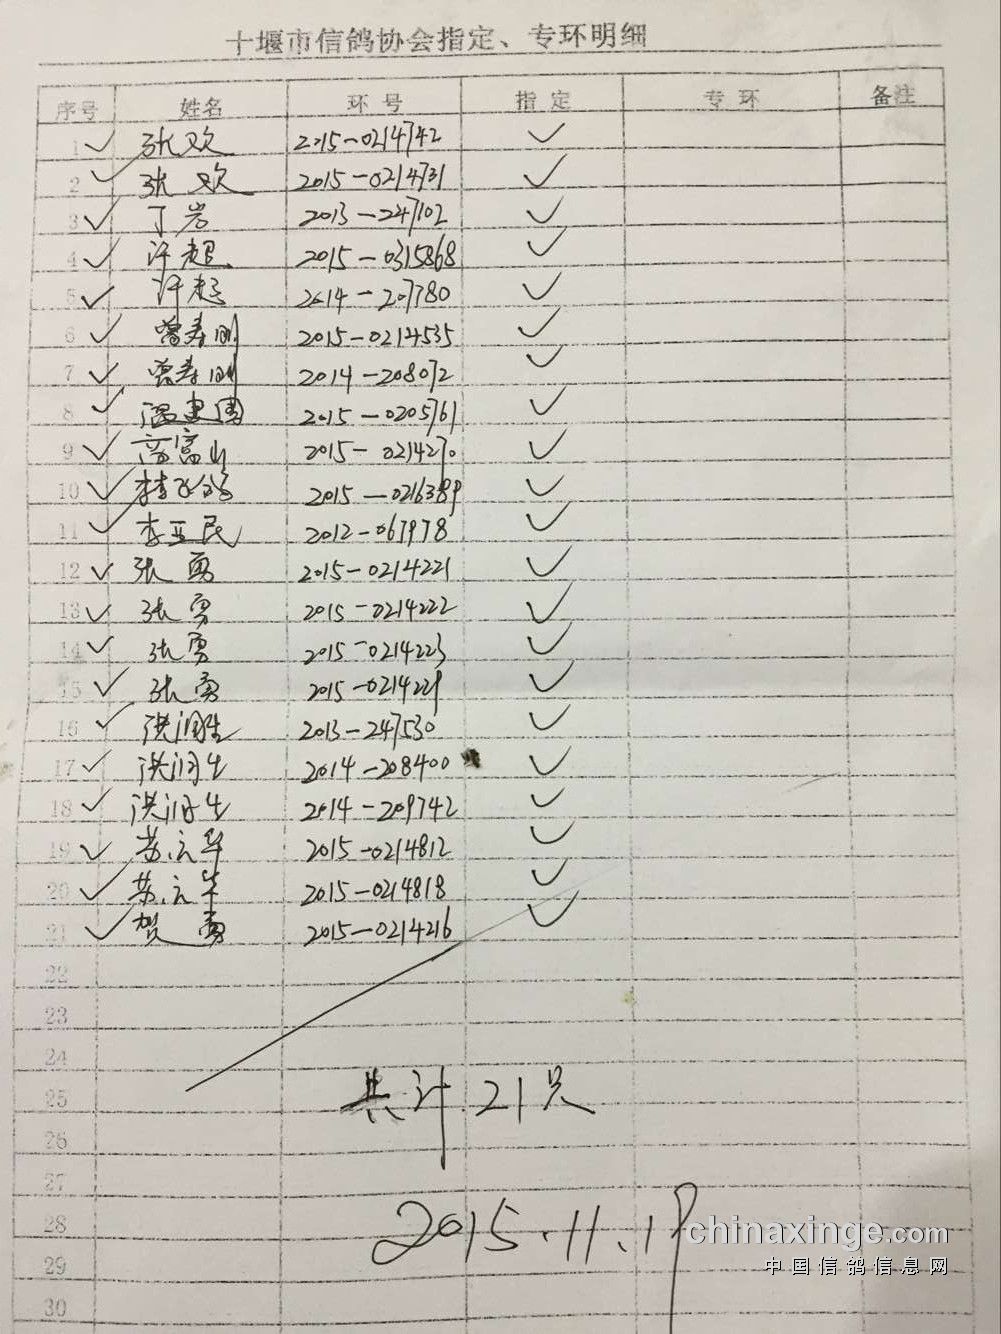 十堰市信鸽协会指定、专环明细
序号 姓名 环号 指定 专环 备注
1 ✓ 张欢 2015-0214742 ✓
2 ✓ 张欢 2015-0214731 ✓
3 ✓ 丁岩 2013-247102 ✓
4 ✓ 许超 2015-0315868 ✓
5 ✓ 许超 2014-207780 ✓
6 ✓ 曾寿刚 2015-0214535 ✓
7 ✓ 曾寿刚 2014-208072 ✓
8 ✓ 温建国 2015-0205761 ✓
9 ✓ 富山 2015-0214270 ✓
10 ✓ 李 2015-0216389 ✓
11 ✓ 李亚民 2012-067978 ✓
12 ✓ 张勇 2015-0214221 ✓
13 ✓ 张勇 2015-0214222 ✓
14 ✓ 张勇 2015-0214223 ✓
15 ✓ 张勇 2015-0214229 ✓
16 ✓ 洪润生 2013-247530 ✓
17 ✓ 洪润生 2014-208400 ✓
18 ✓ 洪润生 2014-209742 ✓
19 ✓ 苏立华 2015-0214812 ✓
20 ✓ 苏立华 2015-0214818 ✓
21 ✓ 贺勇 2015-0214216 ✓
22
23
24
25 共计 21只
26
27
28 2015.11.19
29
30
chinaxinge.com
中国信鸽信息网